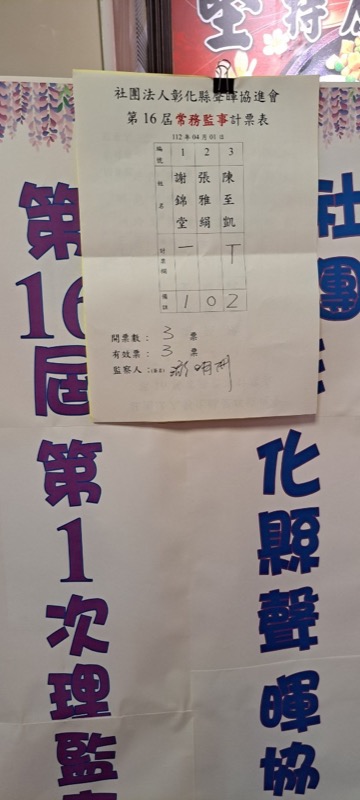 堅持
社團法人彰化縣聲暉協進會
第16屆常務監事計票表
112年04月01日
編號 1 2 3
姓名 謝錦堂 張雅絹 陳至凱
計票欄 一 丅
備註 1 0 2
開票數：3 票
有效票：3 票
監察人：(簽名)
社團
化縣聲暉協
第16屆第1次理監